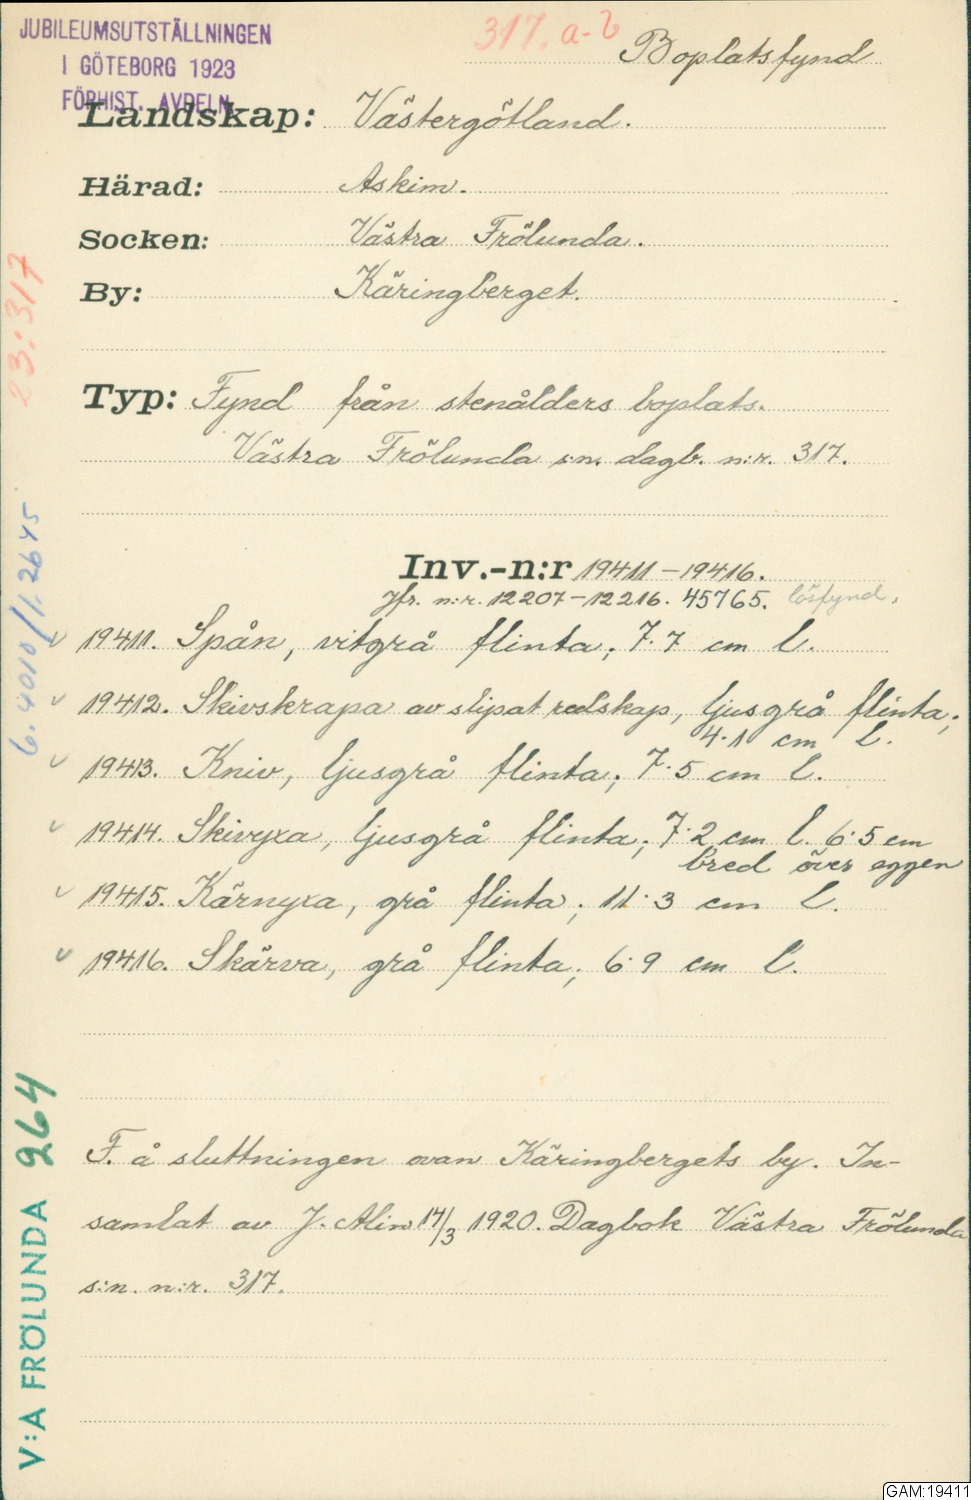 JUBILEUMSUTSTÄLLNINGEN
I GÖTEBORG 1923
FÖRHIST. AVDELN.
317. a-b
Boplatsfynd
Landskap: Västergötland.
Härad: Askim.
Socken: Västra Frölunda.
By: Käringberget.
Typ: Fynd från stenålders boplats.
Västra Frölunda s:n. dagb. n:r. 317.
Inv.-n:r 19411-19416.
Jfr. n:r. 12207-12216. 45765. lösfynd.
19411. Spån, vitgrå flinta; 7.7 cm l.
19412. Skivskrapa av slipat redskap, ljusgrå flinta;
4.1 cm l.
19413. Kniv, ljusgrå flinta; 7.5 cm l.
19414. Skivyxa, ljusgrå flinta; 7.2 cm l. 6.5 cm
bred över eggen
19415. Kärnyxa, grå flinta; 11.3 cm l.
19416. Skärva, grå flinta; 6.9 cm l.
F. å sluttningen ovan Käringbergets by. In-
samlat av J. Alin 17/3 1920. Dagbok Västra Frölunda
s:n. n:r. 317.
23:317
6.4010/1.2645
V:A FRÖLUNDA 264
GAM:19411